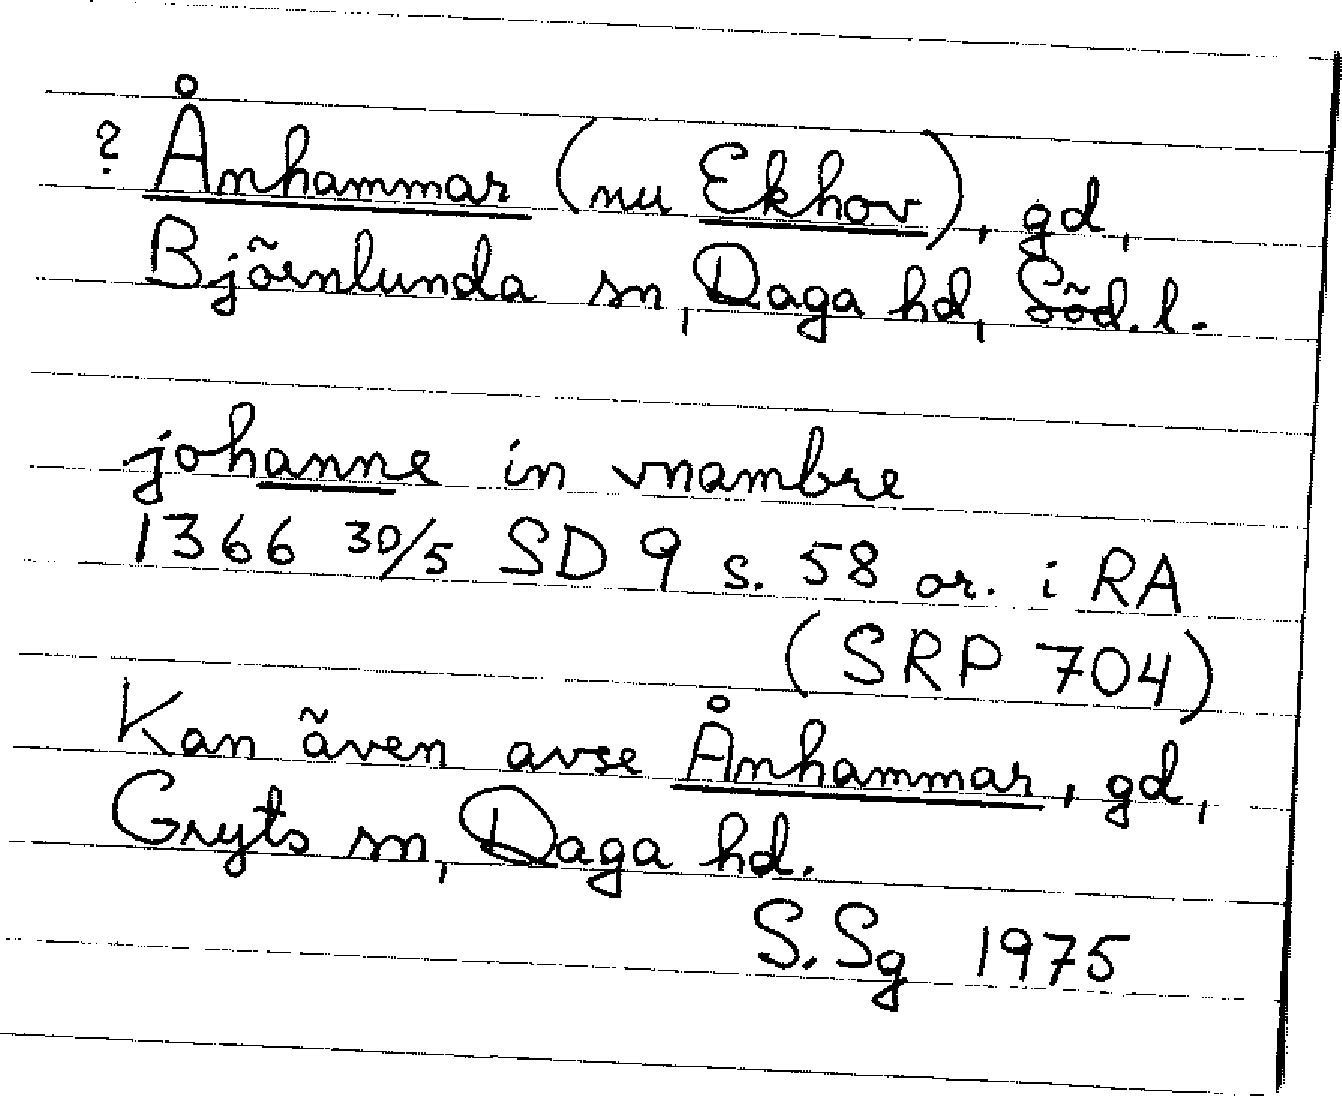 ? Ånhammar (nu Ekhov), gd,
Björnlunda sn, Daga hd, Söd. l.
johanne in vnambre
1366 30/5 SD 9 s. 58 or. i RA
(SRP 704)
Kan även avse Ånhammar, gd,
Gryts sn, Daga hd.
S. Sg 1975